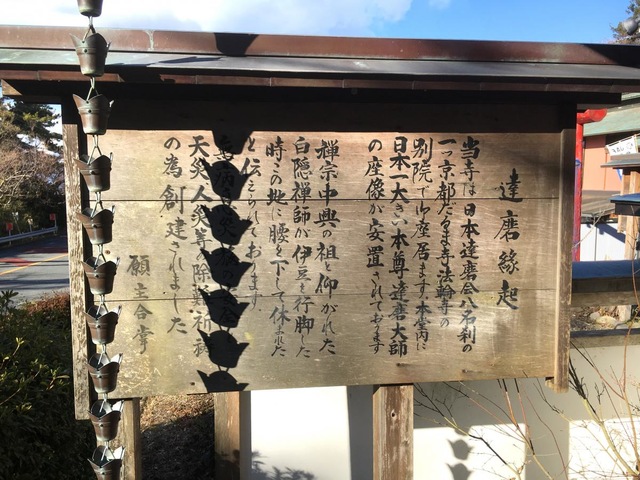 達磨縁起
当寺は日本達磨会八名刹の
一つ京都だるま寺法輪寺の
別院で御座居ます。本堂内に
日本一大きい本尊達磨大師
の座像が安置されております
禅宗中興の祖と仰がれた
白隠禅師が伊豆を行脚した
時この地に腰を下して休まれた
と伝えられております。
無病息災
天災人災等の除難祈祷
の為創建されました
願主合掌